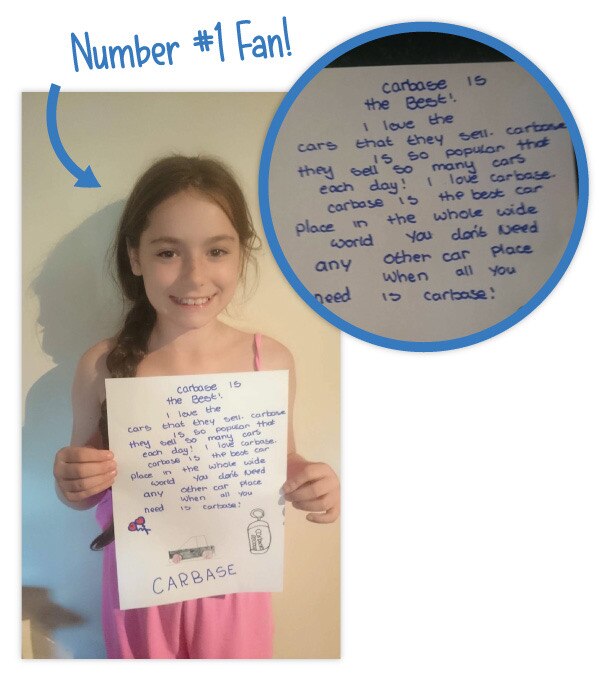 Number #1 Fan!
carbase is
the Best!
I love the
cars that they sell. carbase
is so popular that
they sell so many cars
each day! I love carbase.
carbase is the best car
place in the whole wide
world you don't Need
any other car place
When all you
need is carbase!
carbase is
the Best!
I love the
cars that they sell. carbase
is so popular that
they sell so many cars
each day! I love carbase.
carbase is the best car
place in the whole wide
world you don't Need
any other car place
When all you
need is carbase!
CARBASE